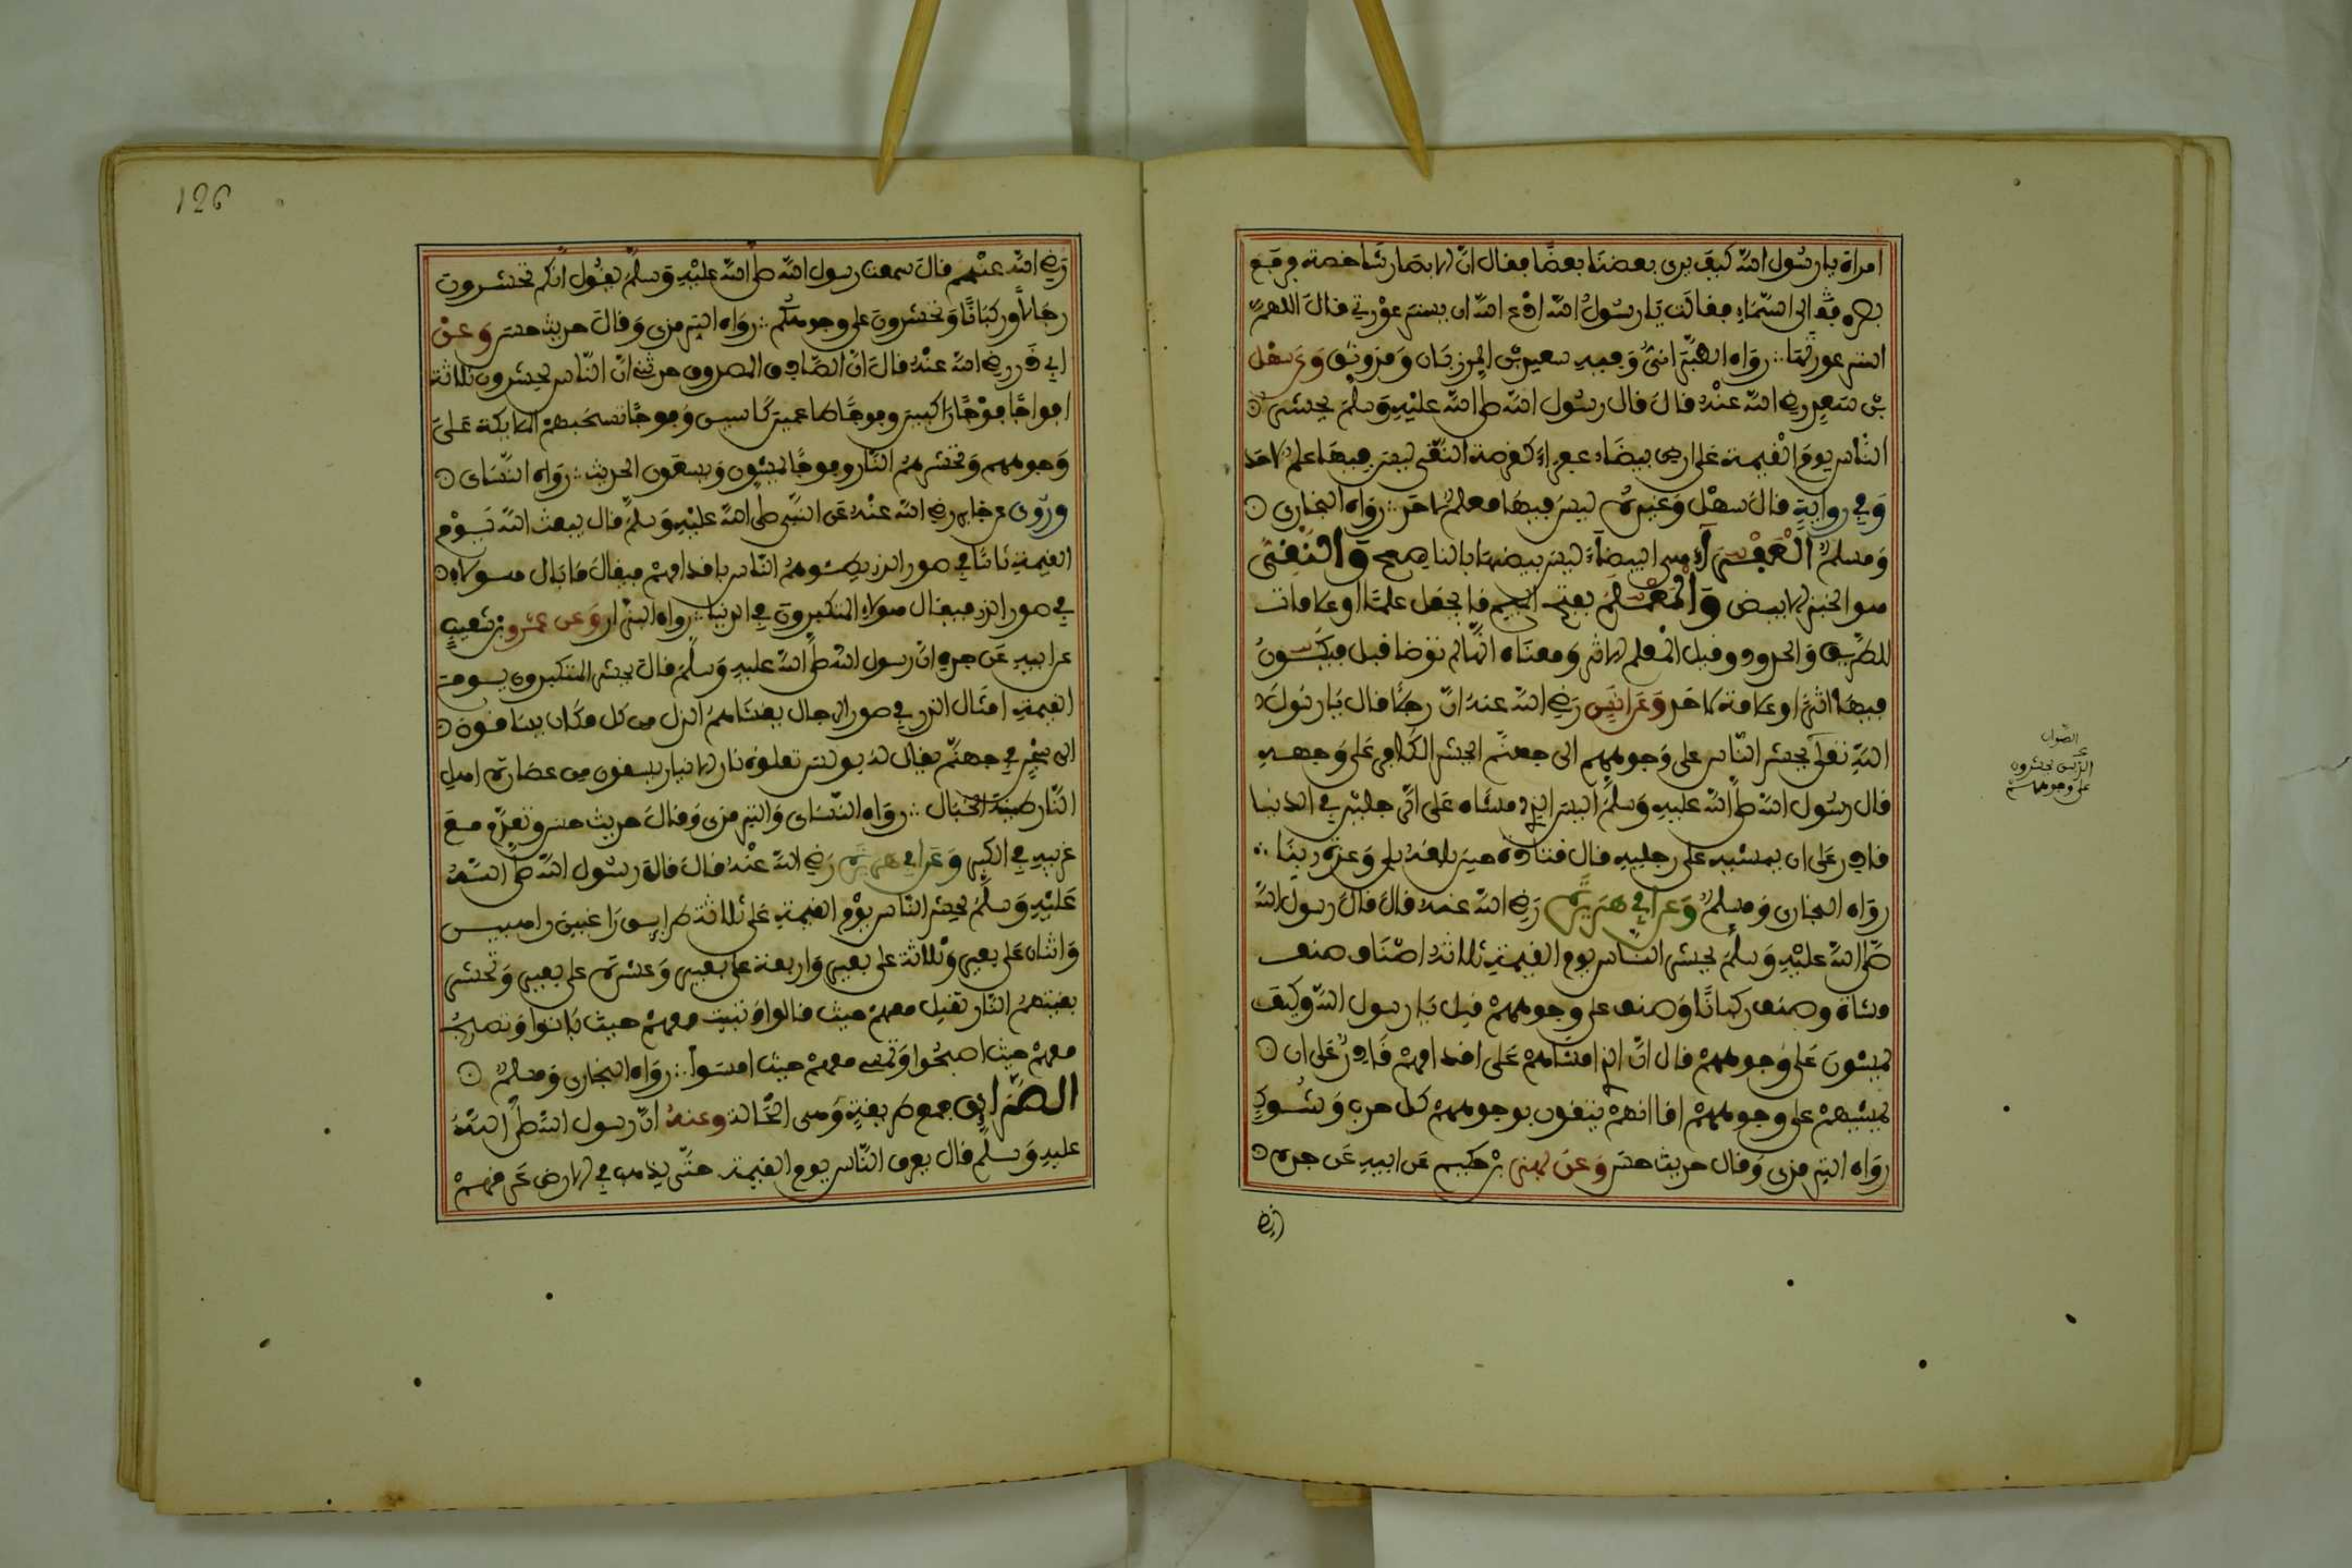 امراة يا رسول الله كيف يرى بعضنا بعضا فقال ان الابصار شاخصة فرفع
بصره الى السماء فقالت يا رسول الله ادع الله ان يستر عورتي قال اللهم
استر عورتها رواه الطبراني وفيه سعيد بن المرزبان وقد وثق وعن سهل
بن سعد رضي الله عنه قال قال رسول الله صلى الله عليه وسلم يحشر
الناس يوم القيمة على ارض بيضاء عفراء كقرصة النقي ليس فيها علم لاحد
وفي رواية قال سهل وغيره ليس فيها معلم لاحد رواه البخاري
ومسلم العفراء هي البيضاء ليس بيضها بالناصع والنقي
هو الخبز الابيض والمعلم بفتح الميم ما يجعل علما او علامات
للطريق والحدود وقيل المعلم الاثر ومعناه انها لم توطا قبل فيكون
فيها اثرا او علامة لاحد وعن انس رضي الله عنه ان رجلا قال يا رسول
الله تعلى يحشر الناس على وجوههم الى جهنم ايحشر الكافر على وجهه
قال رسول الله صلى الله عليه وسلم اليس الذي مشاه على الرجلين في الدنيا
قادر على ان يمشيه على رجليه قال قتادة حين بلغه بلى وعزة ربنا
رواه البخاري ومسلم وعن ابي هريرة رضي الله عنه قال قال رسول الله
صلى الله عليه وسلم يحشر الناس يوم القيمة ثلاثة اصناف صنف
مشاة وصنف ركبانا وصنف على وجوههم قيل يا رسول الله وكيف
يمشون على وجوههم قال ان الذي امشاهم على اقدامهم قادر على ان
يمشيهم على وجوههم اما انهم يتقون بوجوههم كل حدب وشوك
رواه الترمذي وقال حديث حسن وعن بهز بن حكيم عن ابيه عن جده
رضي
الذين يحشرون
على وجوههم
126
رضي الله عنهم قال سمعت رسول الله صلى الله عليه وسلم يقول انكم تحشرون
رجالا وركبانا وتحشرون على وجوهكم رواه الترمذي وقال حديث حسن وعن
ابي ذر رضي الله عنه قال ان الصادق المصدوق حدثني ان الناس يحشرون ثلاثة
افواجا فوجا راكبين وفوجا طاعمين كاسين وفوجا تسحبهم الملايكة على
وجوههم وتحشرهم النار وفوجا يمشون ويسعون الحديث رواه النساي
وروي عن جابر رضي الله عنه عن النبي صلى الله عليه وسلم قال يبعث الله يوم
القيمة ناسا في صور الذر يطئوهم الناس باقدامهم فيقال ما بال هولاء
في صور الذر فيقال هولاء المتكبرون في الدنيا رواه البزار وعن عمرو بن شعيب
عن ابيه عن جده ان رسول الله صلى الله عليه وسلم قال يحشر المتكبرون يوم
القيمة امثال الذر في صور الرجال يغشاهم الذل من كل مكان يساقون
الى سجن في جهنم يقال له بولس تعلوه نار الانيار يسقون من عصارة اهل
النار طينة الخبال رواه النساي والترمذي وقال حديث حسن وتقدم مع
غريبه في الكبر وعن ابي هريرة رضي الله عنه قال قال رسول الله صلى الله
عليه وسلم يحشر الناس يوم القيمة على ثلاثة طرايق راغبين راهبين
واثنان على بعير وثلاثة على بعير واربعة على بعير وعشرة على بعير وتحشر
بقيتهم النار تقيل معهم حيث قالوا وتبيت معهم حيث باتوا وتصبح
معهم حيث اصبحوا وتمسي معهم حيث امسوا رواه البخاري ومسلم
الطرايق جمع طريقة وهي الحالة وعنه ان رسول الله صلى الله
عليه وسلم قال يعرق الناس يوم القيمة حتى يذهب في الارض عرقهم